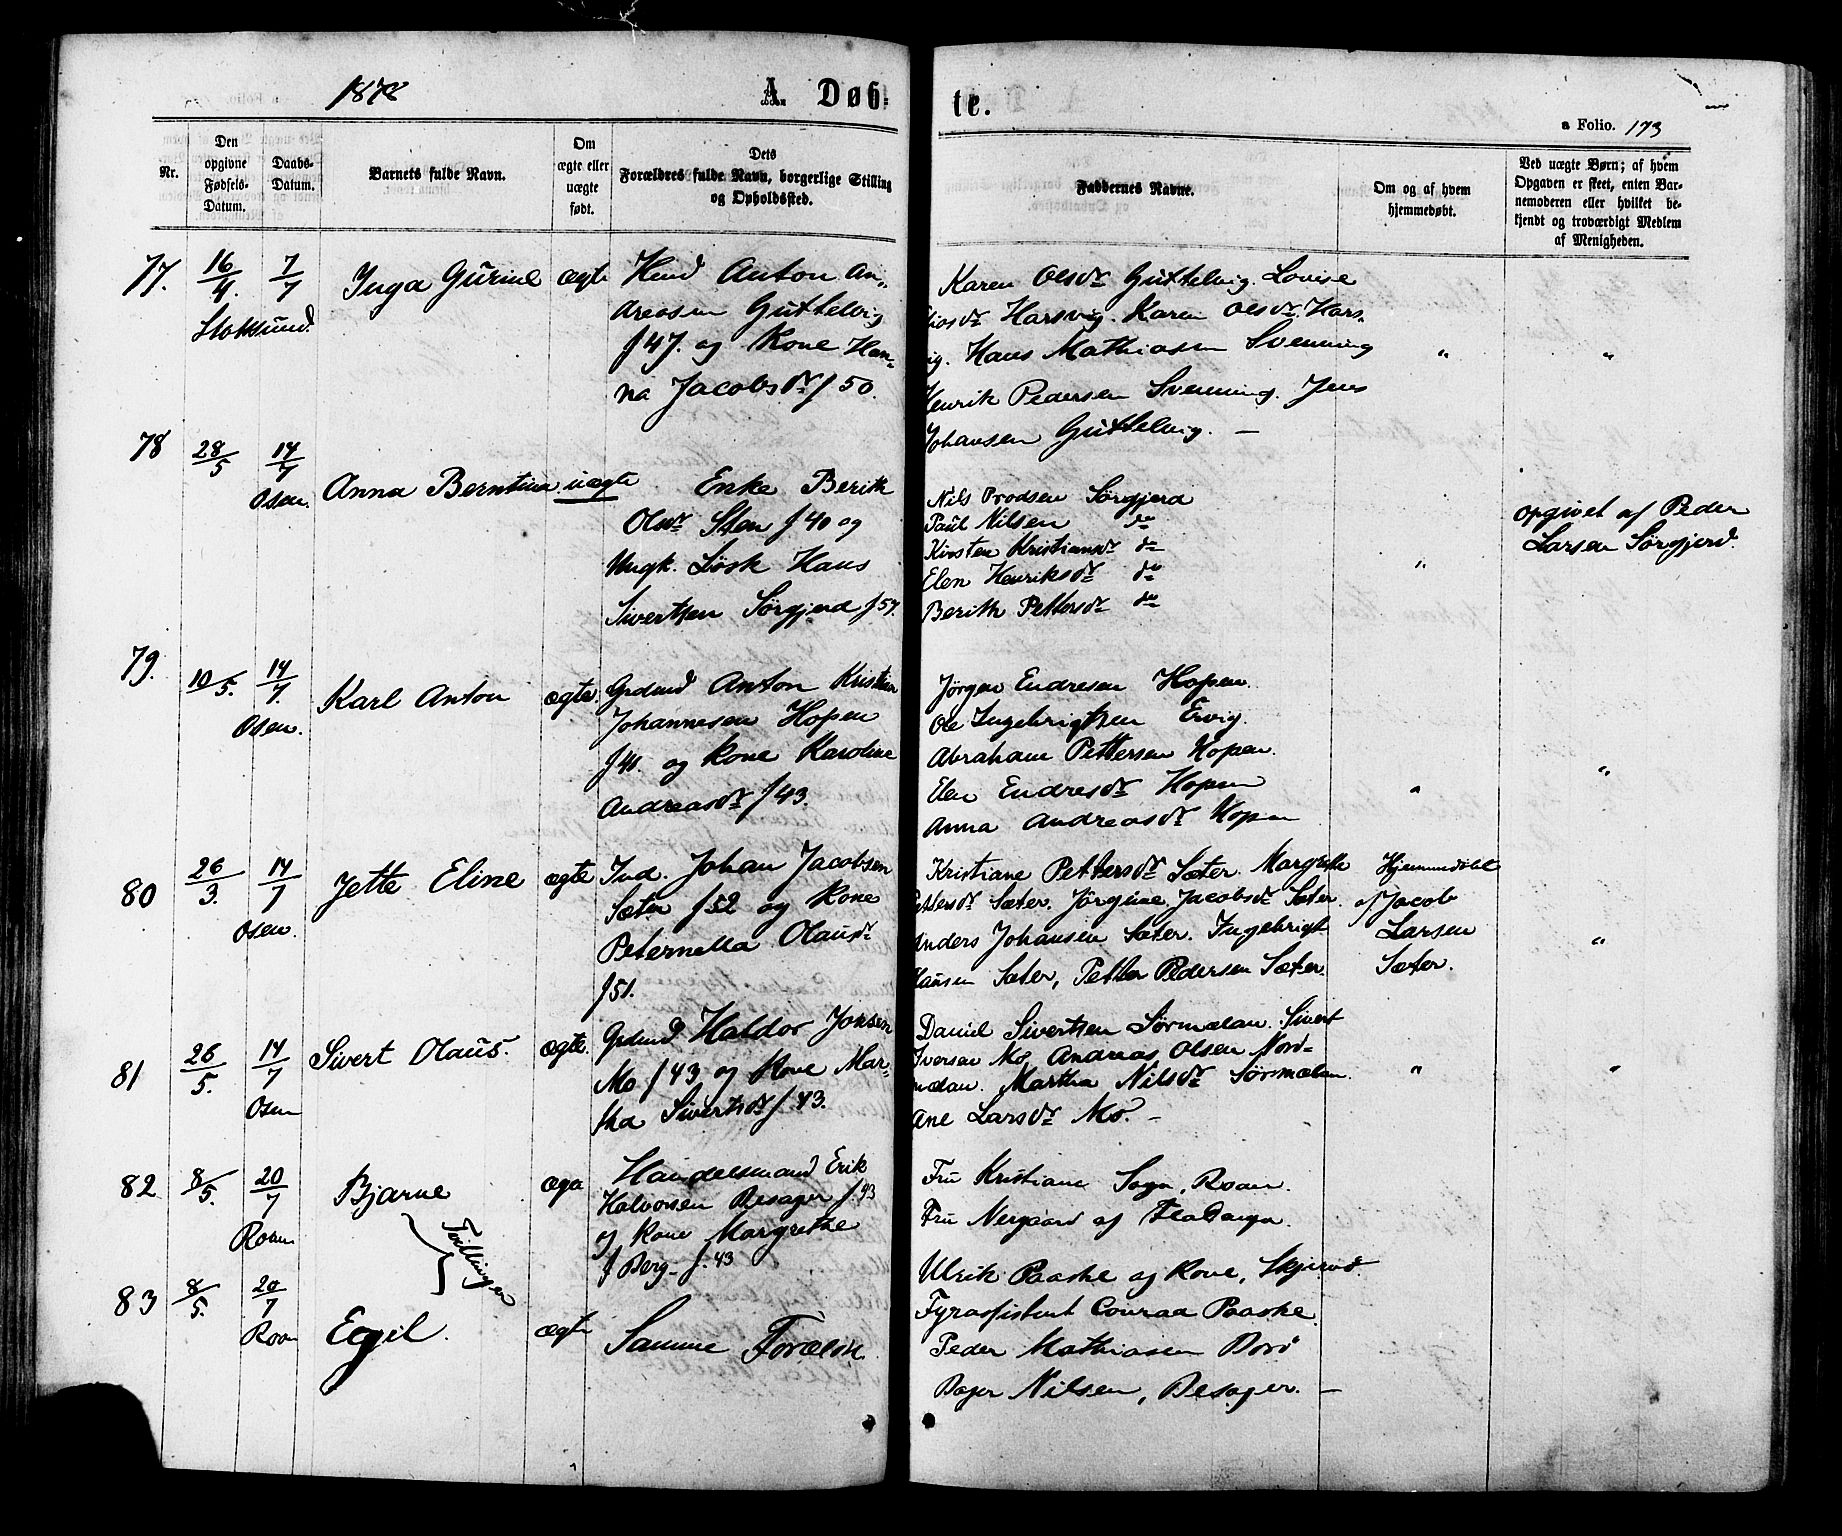 1878 A. Døb-
te.
a Folio. 173
Nr.
Den opgivne Fødsels-Datum.
Daabs-Datum.
Barnets fulde Navn.
Om ægte eller uægte født.
Dets Forældres fulde Navn, borgerlige Stilling og Opholdssted.
Faddernes Navne.
Om og af hvem hjemmedøbt.
Ved uægte Børn; af hvem Opgaven er skeet, enten Barnemoderen eller hvilket bekjendt og troværdigt Medlem af Menigheden.
77. 16/4. 7/7 Stoksund. Inga Gurine ægte
Husmd Anton An-
dreasen Guttelvig
f 47. og Kone Han-
na Jacobsdr f 50.
Karen Olsdr Guttelvig. Lovise
Harsvig. Karen Olsdr. Hars-
ig. Hans Mathiasen Svenning
Henrik Pedersen Svenning. Jens
Johansen Guttelvig. —
" "
78 28/5 14/7 Osen. Anna Berntina uægte
Enke Berith
Olsdr Sten f 40 og
Ungk. Løsk Hans
Sivertsen Sørgjerd f 57.
Nils Frodsen Sørgjerd
Paul Nilsen do
Kirsten Kristiansdr do
Elen Henriksdr do
Berith Pettersdr do
"
opgivet af Peder
Larsen Sørgjerd.
79. 10/5. 14/7 Osen. Karl Anton ægte.
Grdmd Anton Kristian
Johannesen Hopen
f 41. og Kone Karoline
Andreasdr f 43.
Jörgen Endresen Hopen
Ole Ingebrigtsen Ervig.
Abraham Pettersen Hopen.
Elen Endresdr Hopen
Anna Andreasdr Hopen
" "
80 26/3. 14/7 Osen. Jette Eline ægte
Ind. Johan Jacobsen
Sæter f 52 og Kone
Peternella Olausdr
f 51.
Kristiane Pettersdr Sæter. Margrethe
Pettersdr Sæter. Jörgine Jacobsdr Sæter.
Anders Johansen Sæter. Ingebrigt
Hansen Sæter, Petter Pedersen Sæter.
Hjemmedøbt
af Jacob
Larsen
Sæter.
"
81 26/5. 14/7 Osen Sivert Olaus. ægte.
Grdmd Haldor Jonsen
Mo f 43 og Kone Mar-
tha Sivertsdr f. 43.
Daniel Sivertsen Sørmælan. Sivert
Iversen Mo, Andreas Olsen Nord-
mælan. Martha Nilsdr Sørmælan.
Ane Larsdr Mo. —
" "
82 8/5. 20/7 Roan Bjarne ægte
Handelsmand Erik
Halvorsen Besager f. 43
og Kone Margrethe
f Berg – f. 43
Fru Kristiane Sogn, Roan.
Fru Nergaard af
Tvillinger
83 8/5. 20/7 Roan Egil. ægte
Samme Forældre.
Ulrik Paaske og Kone, Skjervø.
Fyrassistent Conrad Paaske
Peder Mathiasen Borø
Nilsen, Besager. —